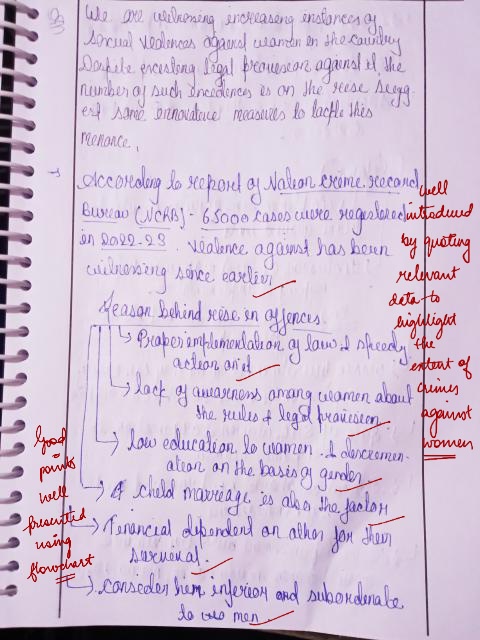 We are witnessing increasing instances of
Sexual Violences against women in the country
Despite existing legal provision against it, the
number of such incidences is on the rise Sugg-
est some innovative measures to tackle this
menance.
→ According to report of Nation crime record
Bureau (NCRB) - 65000 cases were registered
in 2022-23. Violence against has been
witnessing since earlier
Reason behind rise in offences.
→ Proper implementation of law & speedy
action on it
→ lack of awareness among women about
the rules & legal provision
→ low education to women & descremen-
ation on the basis of gender
→ child marriage is also the factor
→ Financial dependent on other for their
survival.
→ consider him inferior and subordinate
to men
well
introduced
by quoting
relevant
data to
highlight
the
extent of
crimes
against
women
Good
points
well
presented
using
flowchart